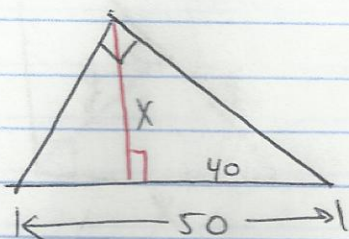 X
40
50